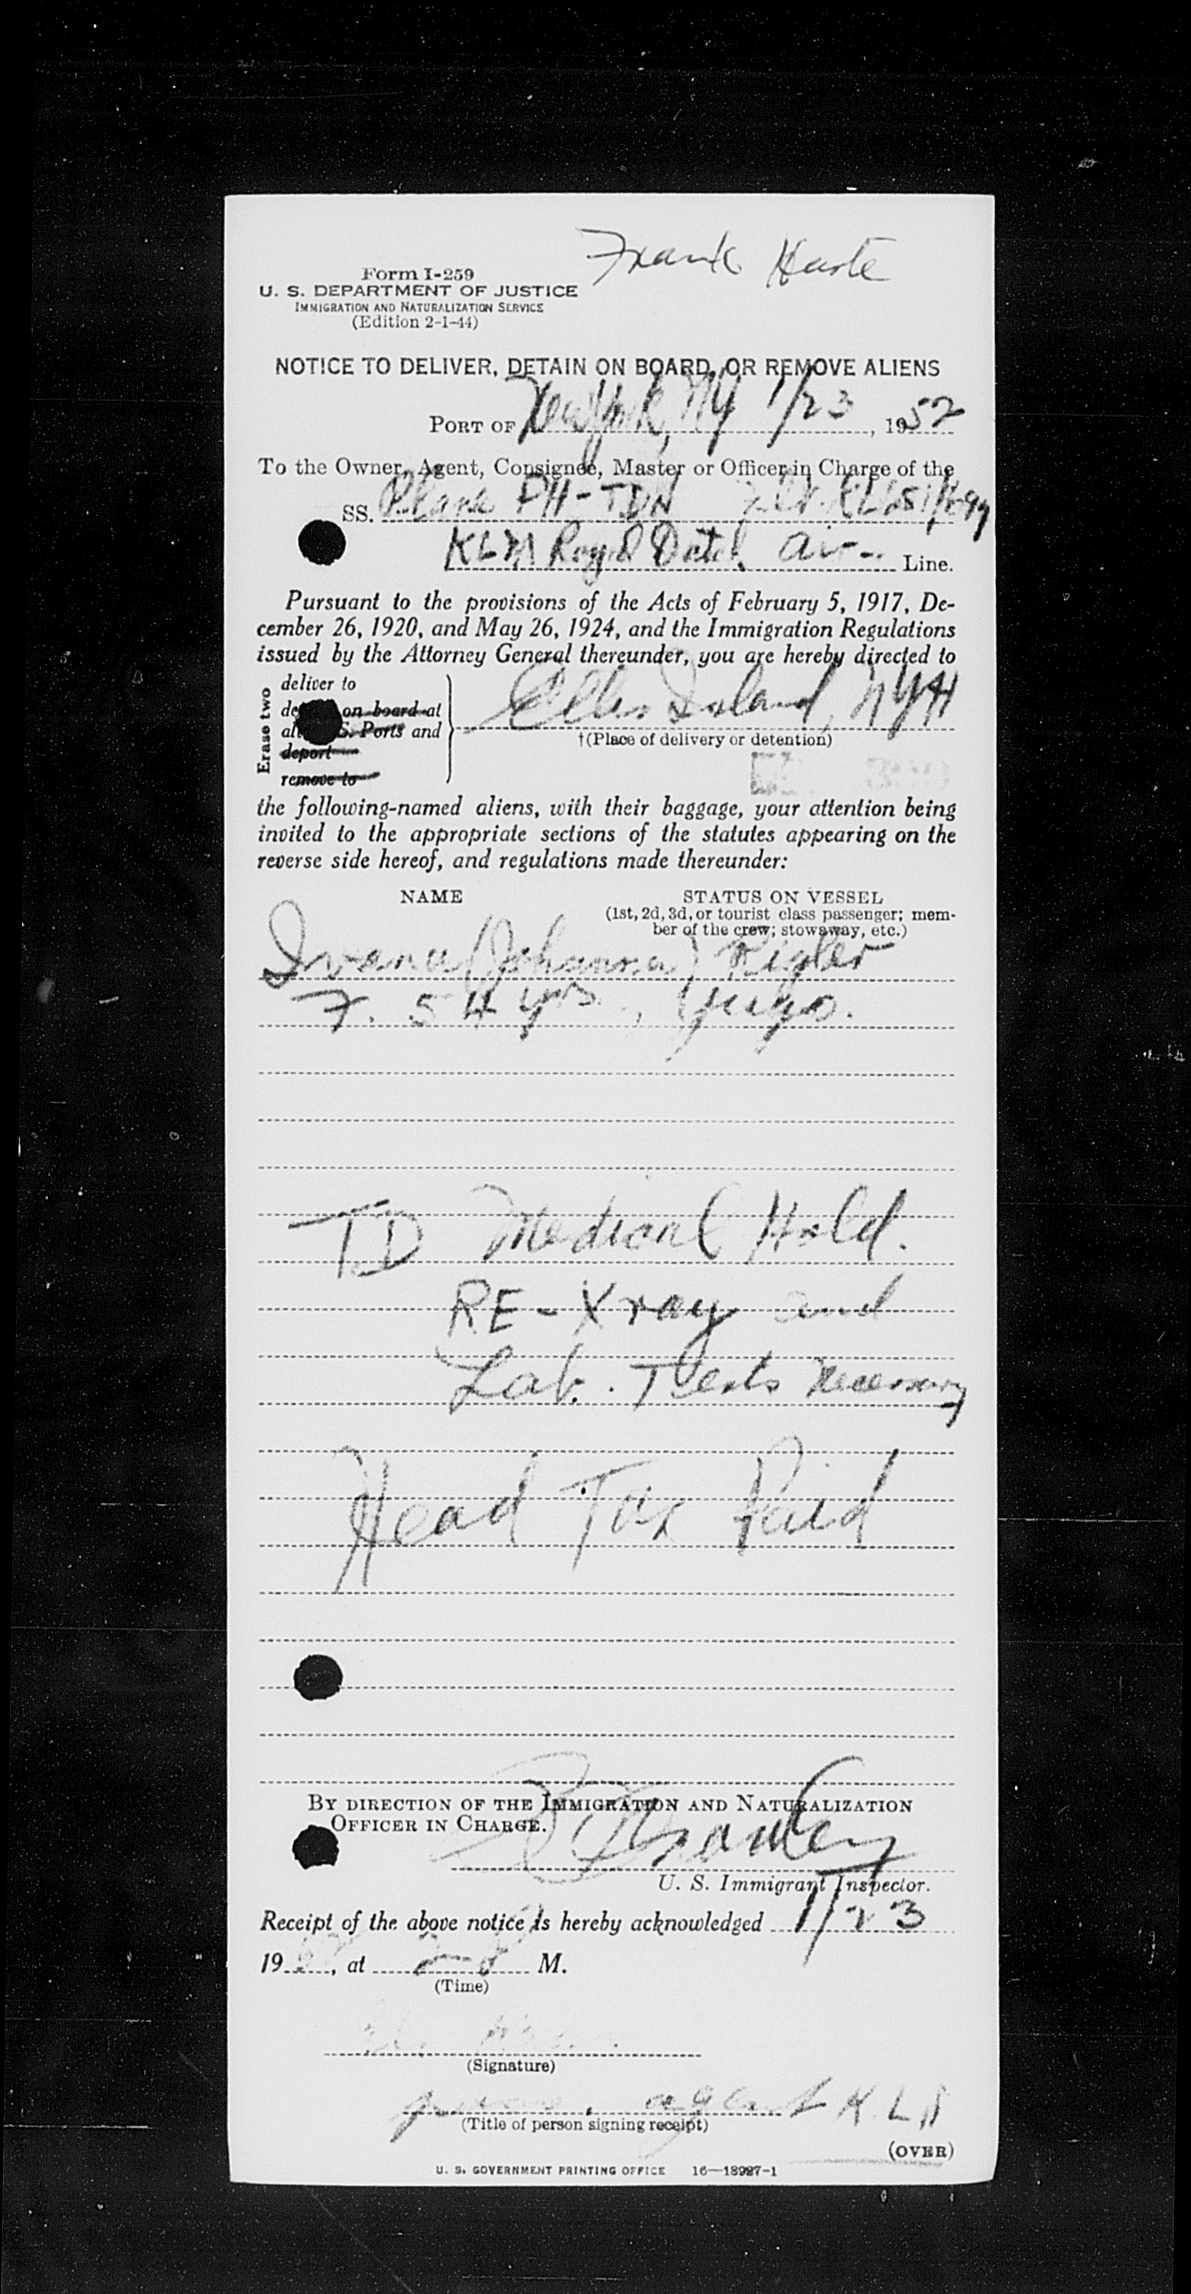 Frank Harte
Form I-259
U. S. DEPARTMENT OF JUSTICE
IMMIGRATION AND NATURALIZATION SERVICE
(Edition 2-1-44)
NOTICE TO DELIVER, DETAIN ON BOARD, OR REMOVE ALIENS
PORT OF New York, NY 1/23, 1952
To the Owner, Agent, Consignee, Master or Officer in Charge of the
SS. Plane PH-TDN
KLM Royal Dutch Air- Line.
Pursuant to the provisions of the Acts of February 5, 1917, De-
cember 26, 1920, and May 26, 1924, and the Immigration Regulations
issued by the Attorney General thereunder, you are hereby directed to
Erase two
deliver to
on board at
S. Ports and
deport
remove to
Ellis Island, NYH
†(Place of delivery or detention)
the following-named aliens, with their baggage, your attention being
invited to the appropriate sections of the statutes appearing on the
reverse side hereof, and regulations made thereunder:
NAME STATUS ON VESSEL
(1st, 2d, 3d, or tourist class passenger; mem-
ber of the crew; stowaway, etc.)
Ivana (Johanna) Rigler
F. 54 yrs., Yugo.
TD Medical Hold.
RE-Xray and
Lab. Tests Necessary
Head Tax Paid
BY DIRECTION OF THE IMMIGRATION AND NATURALIZATION
OFFICER IN CHARGE.
U. S. Immigrant Inspector.
Receipt of the above notice is hereby acknowledged 1/23
19, at M.
(Time)
(Signature)
agent KLM
(Title of person signing receipt)
(OVER)
U. S. GOVERNMENT PRINTING OFFICE 16—18987-1